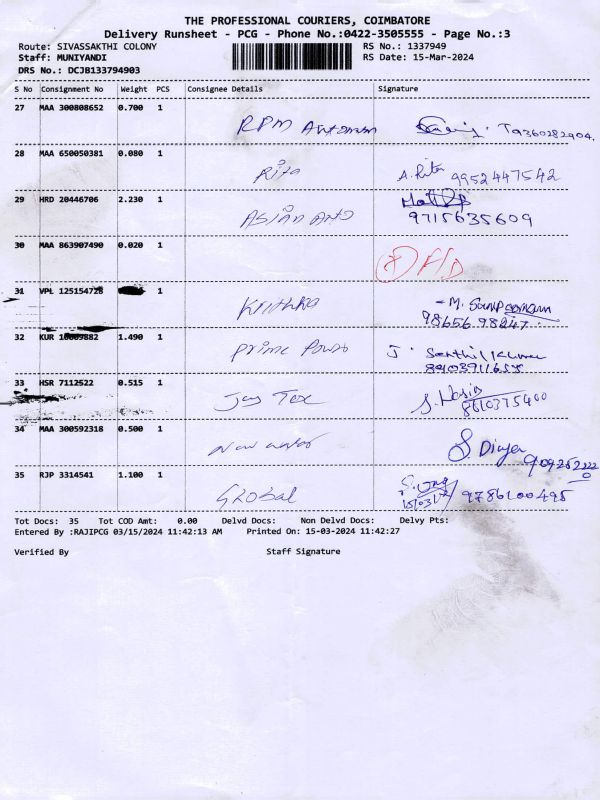 THE PROFESSIONAL COURIERS, COIMBATORE
Delivery Runsheet - PCG - Phone No.:0422-3505555 - Page No.:3
Route: SIVASSAKTHI COLONY RS No.: 1337949
Staff: MUNIYANDI RS Date: 15-Mar-2024
DRS No.: DCJB133794903
S No Consignment No Weight PCS Consignee Details Signature
27 MAA 300808652 0.700 1
RPM
28 MAA 650050381 0.080 1
Rita A. Rita 9952447542
29 HRD 20446706 2.230 1
ASIAN 9715635609
30 MAA 863907490 0.020 1
F/D
31 VPL 125154728 1
Krithika - M.
98656 98247
32 KUR 1.490 1
Prime J. Senthil Kumar
33 HSR 7112522 0.515 1
Jay Tex
8610375400
34 MAA 300592318 0.500 1
35 RJP 3314541 1.100 1
GLOBAL 9786100495
Tot Docs: 35 Tot COD Amt: 0.00 Delvd Docs: Non Delvd Docs: Delvy Pts:
Entered By :RAJIPCG 03/15/2024 11:42:13 AM Printed On: 15-03-2024 11:42:27
Verified By Staff Signature